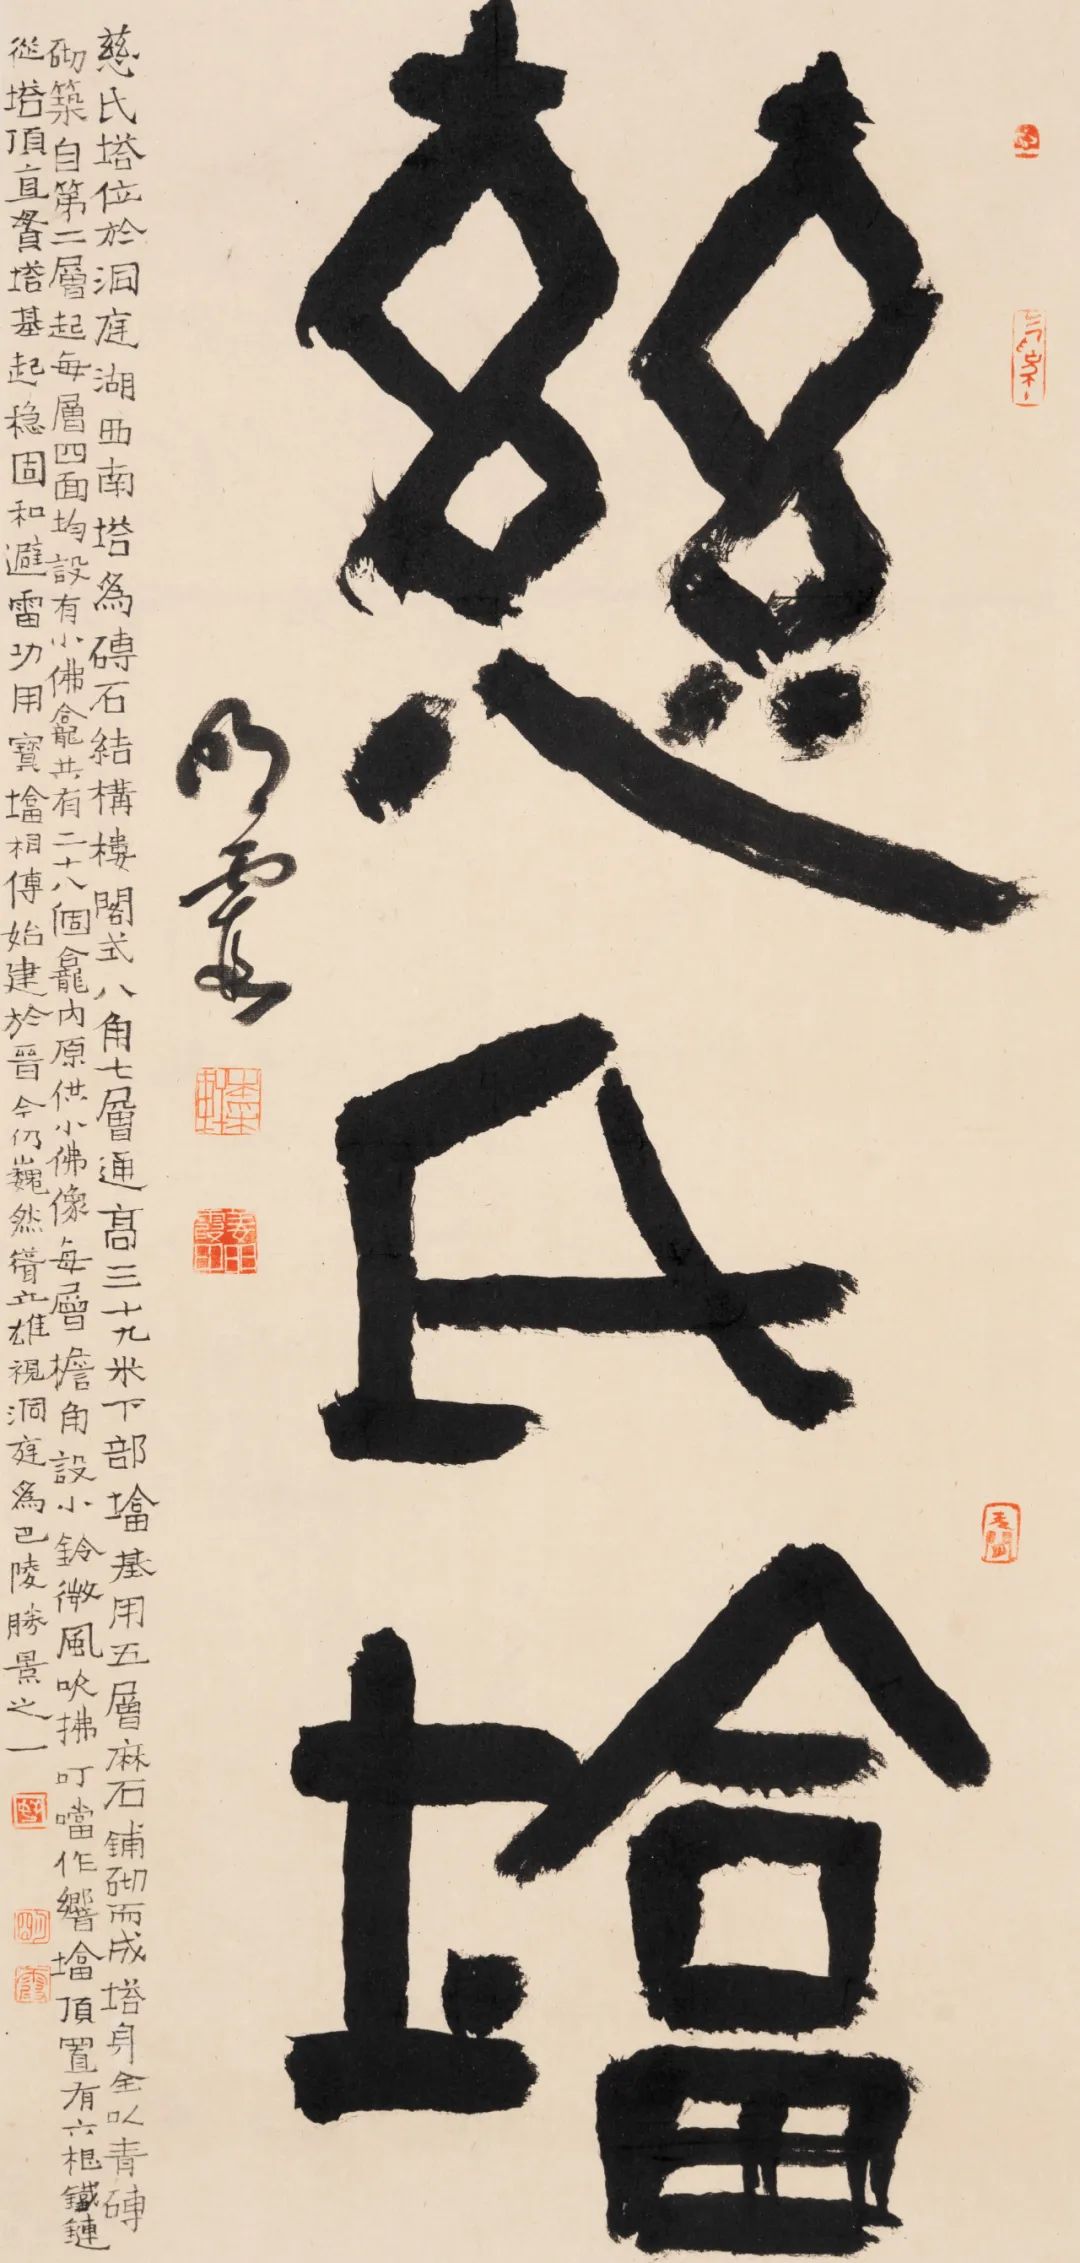 慈氏塔
明霞
慈氏塔位於洞庭湖西南塔為磚石結構樓閣式八角七層通高三十九米下部墖基用五層麻石鋪砌而成塔身全以青磚
砌築自第二層起每層四面均設有小佛龕共有二十八個龕內原供小佛像每層檐角設小鈴微風吹拂叮噹作響墖頂置有六根鐵鏈
從塔頂直貫塔基起穩固和避雷功用寶墖相傳始建於晉今仍巍然聳立雄視洞庭為巴陵勝景之一